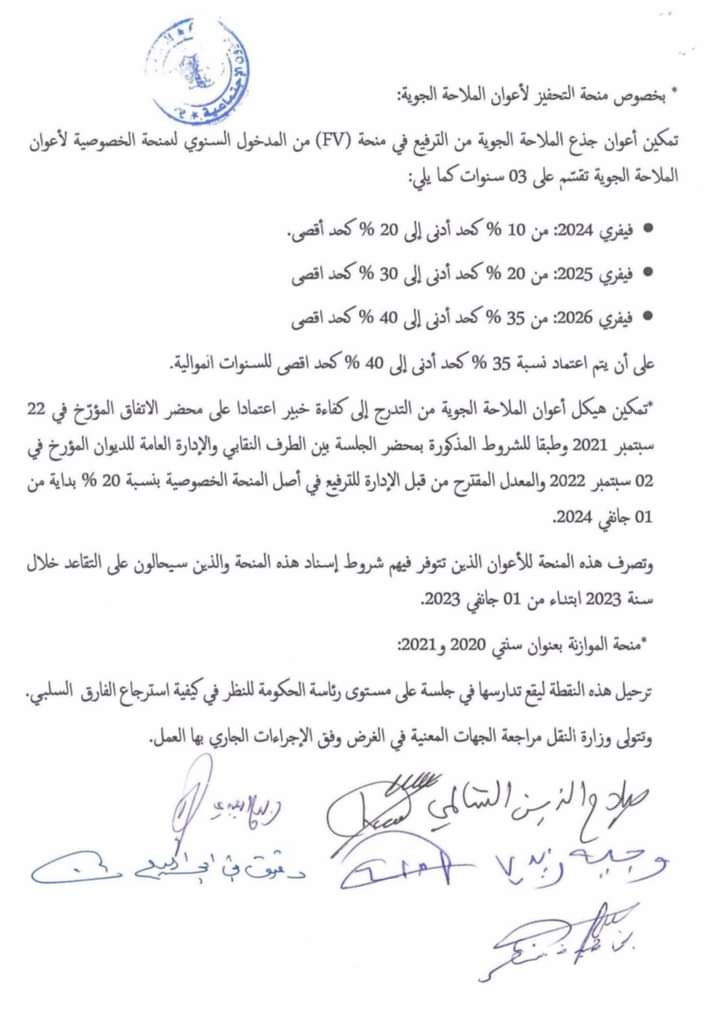 الاجتماعية
* بخصوص منحة التحفيز لأعوان الملاحة الجوية:
تمكين أعوان جذع الملاحة الجوية من الترفيع في منحة (FV) من المدخول السنوي لمنحة الخصوصية لأعوان
الملاحة الجوية تقسّم على 03 سنوات كما يلي:
● فيفري 2024: من 10 % كحد أدنى إلى 20 % كحد أقصى.
● فيفري 2025: من 20 % كحد أدنى إلى 30 % كحد اقصى
● فيفري 2026: من 35 % كحد أدنى إلى 40 % كحد اقصى
على أن يتم اعتماد نسبة 35 % كحد أدنى إلى 40 % كحد اقصى للسنوات الموالية.
*تمكين هيكل أعوان الملاحة الجوية من التدرج إلى كفاءة خبير اعتمادا على محضر الاتفاق المؤرّخ في 22
سبتمبر 2021 وطبقا للشروط المذكورة بمحضر الجلسة بين الطرف النقابي والإدارة العامة للديوان المؤرخ في
02 سبتمبر 2022 والمعدل المقترح من قبل الإدارة للترفيع في أصل المنحة الخصوصية بنسبة 20 % بداية من
01 جانفي 2024.
وتصرف هذه المنحة للأعوان الذين تتوفر فيهم شروط إسناد هذه المنحة والذين سيحالون على التقاعد خلال
سنة 2023 ابتداء من 01 جانفي 2023.
*منحة الموازنة بعنوان سنتي 2020 و2021:
ترحيل هذه النقطة ليقع تدارسها في جلسة على مستوى رئاسة الحكومة للنظر في كيفية استرجاع الفارق السلبي.
وتتولى وزارة النقل مراجعة الجهات المعنية في الغرض وفق الإجراءات الجاري بها العمل.
صلاح الدين السالمي
وجيه زيدي